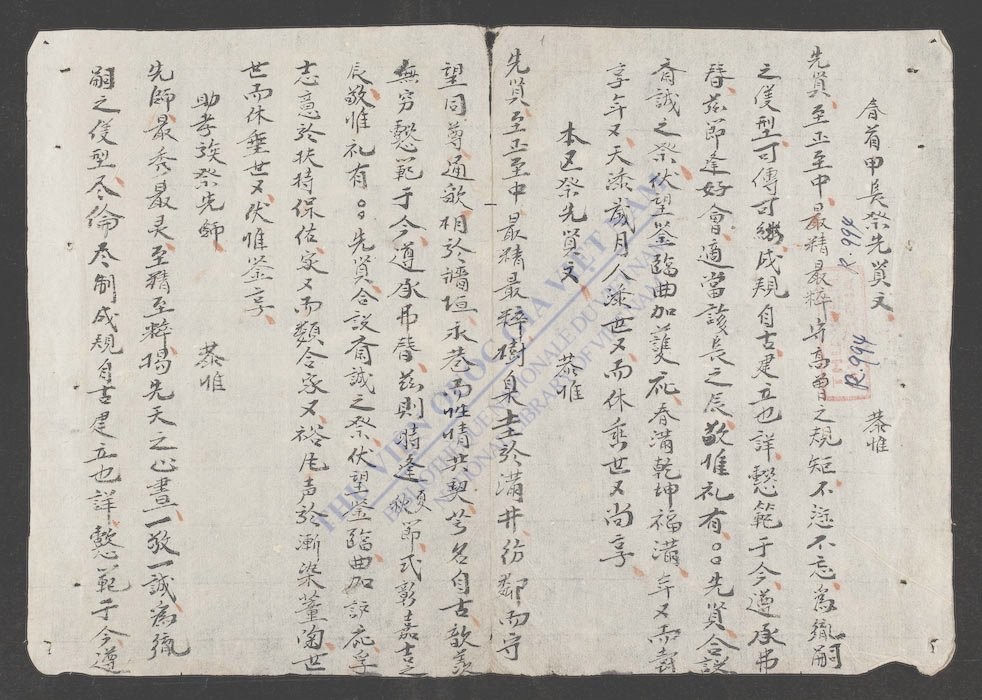 春首甲長祭先賢文
恭惟
先賢至正至中最精最粹守高曾之規矩不愆不忘為嗣
之儀型可傳可繼成規自古建立也詳懿範于今遵承弗
替茲節逢好會適當該長之辰敬惟礼有〻先賢合設
齋誠之祭伏望鉴臨曲加護庇春滿乾坤福滿年又而壽
享年又天添歲月人添世又而休垂世又尚享
本邑祭先賢文
恭惟
先賢至正至中最精最粹樹臬圭於溝井彷鄰而守
望同尊通歌相於墻垣永巷而性情共契芳名自古歆羡
無穷懿範于今遵承弗替茲則時逢節式彰嘉
辰敬惟礼有〻先賢合説齋誠之祭伏望鉴臨曲加諒庇孚
志意於扶持保佑家又而類合家又裕毛声於漸染薰陶世
世而休垂世又伏惟鉴享
助孝族祭先師
恭惟
先師最秀最灵至精至粹揭先天之心畫一敬一誠為
嗣之儀型尽倫尽制成規自古建立也詳懿範于今遵
R.994
R.994
THƯ VIỆN QUỐC GIA VIỆT NAM
BIBLIOTHÈQUE NATIONALE DU VIETNAM
NATIONAL LIBRARY OF VIETNAM